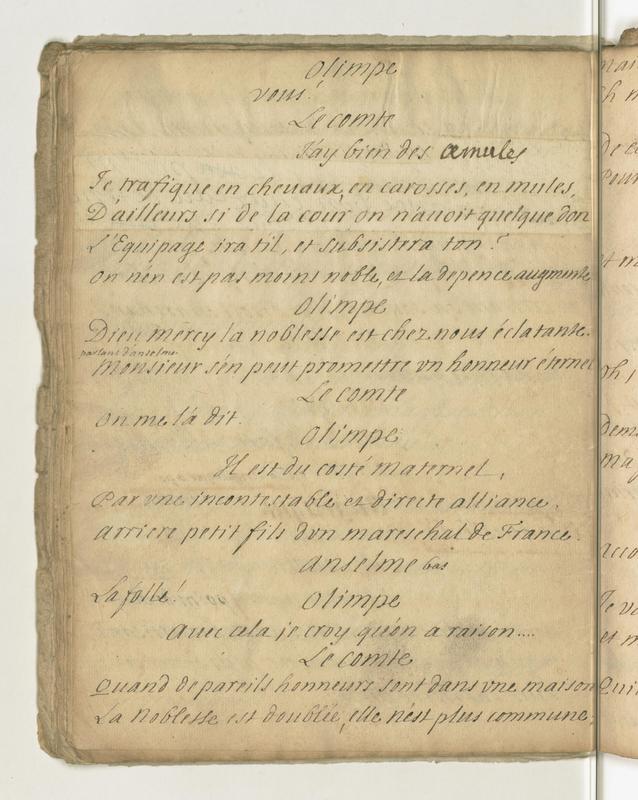 Olimpe
vous!
Le comte
J'ay bien des emules
Je trafique en chevaux, en carosses, en mules,
D'ailleurs si de la cour on n'auoit quelque don
L'Equipage ira til, et subsistera ton?
on n'en est pas moins noble, et la depence augmente
Olimpe
Dieu mercy la noblesse est chez nous éclatante.
parlant d'anselme
Monsieur s'en peut promettre vn honneur éternel
Le comte
on me l'a dit.
Olimpe
Il est du costé maternel,
Par vne incontestable et directe alliance.
arriere petit fils d'vn mareschal de France.
anselme bas
La folle!
Olimpe
Auec cela je croy qu'on a raison....
Le comte
Quand de pareils honneurs sont dans vne maison
La noblesse est doublée, elle n'est plus commune,